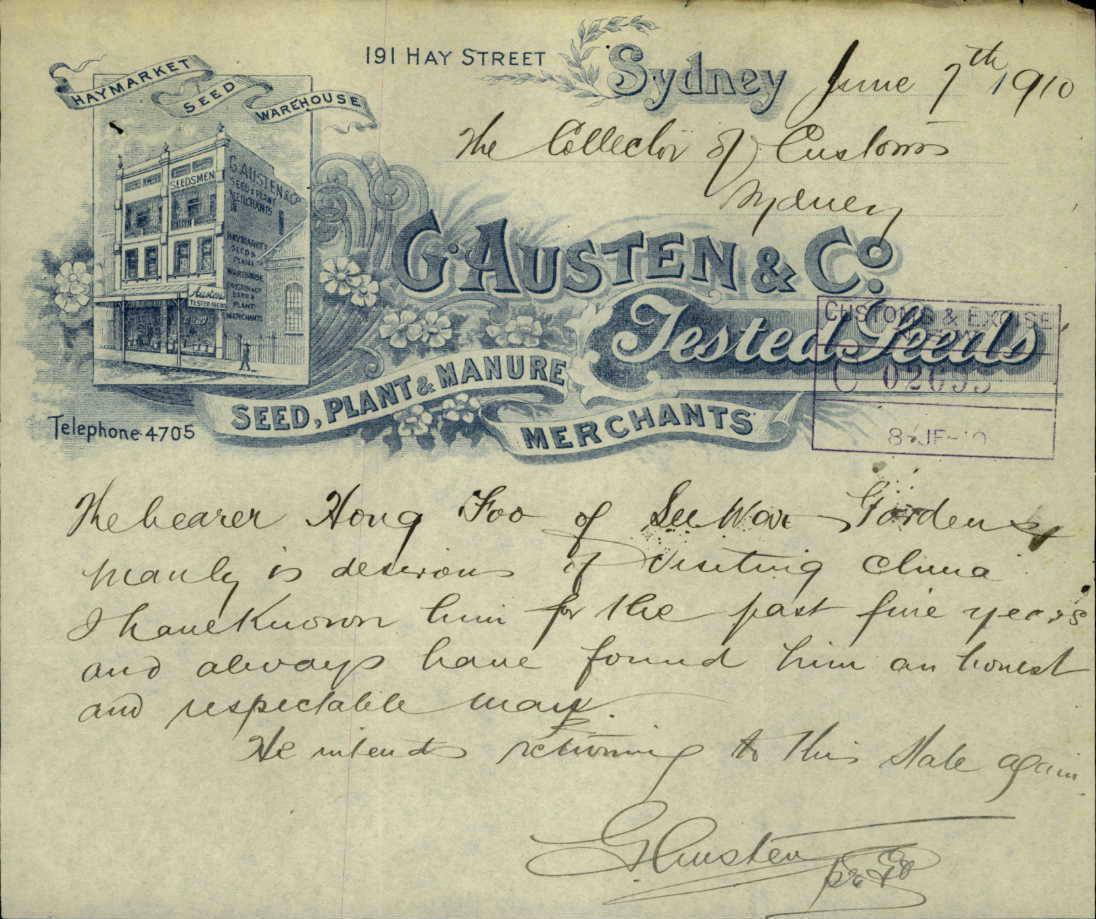 191 HAY STREET
Sydney June 7th 1910
HAYMARKET
SEED
WAREHOUSE
The Collector of Customs
Sydney
SEEDSMEN
G. AUSTEN & Co
SEED & PLANT
MERCHANTS
HAYMARKET
SEED &
PLANT
WAREHOUSE
SEED &
PLANT
MERCHANTS
Austens
TESTED SEEDS
G. AUSTEN & Co.
Tested Seeds
CUSTOMS & EXCISE
C 02695
8 JE-10
SEED, PLANT & MANURE
MERCHANTS
Telephone 4705
The bearer Hong Foo of See War Gardens
Manly is desirous of visiting China
I have Known him for the past five years
and always have found him an honest
and respectable man
He intends returning to this State again
G Austen